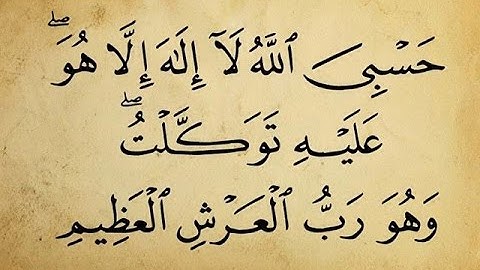 حَسْبِيَ ٱللَّهُ لَآ إِلَٰهَ إِلَّا هُوَۖ
عَلَيْهِ تَوَكَّلْتُۖ
وَهُوَ رَبُّ ٱلْعَرْشِ ٱلْعَظِيمِ